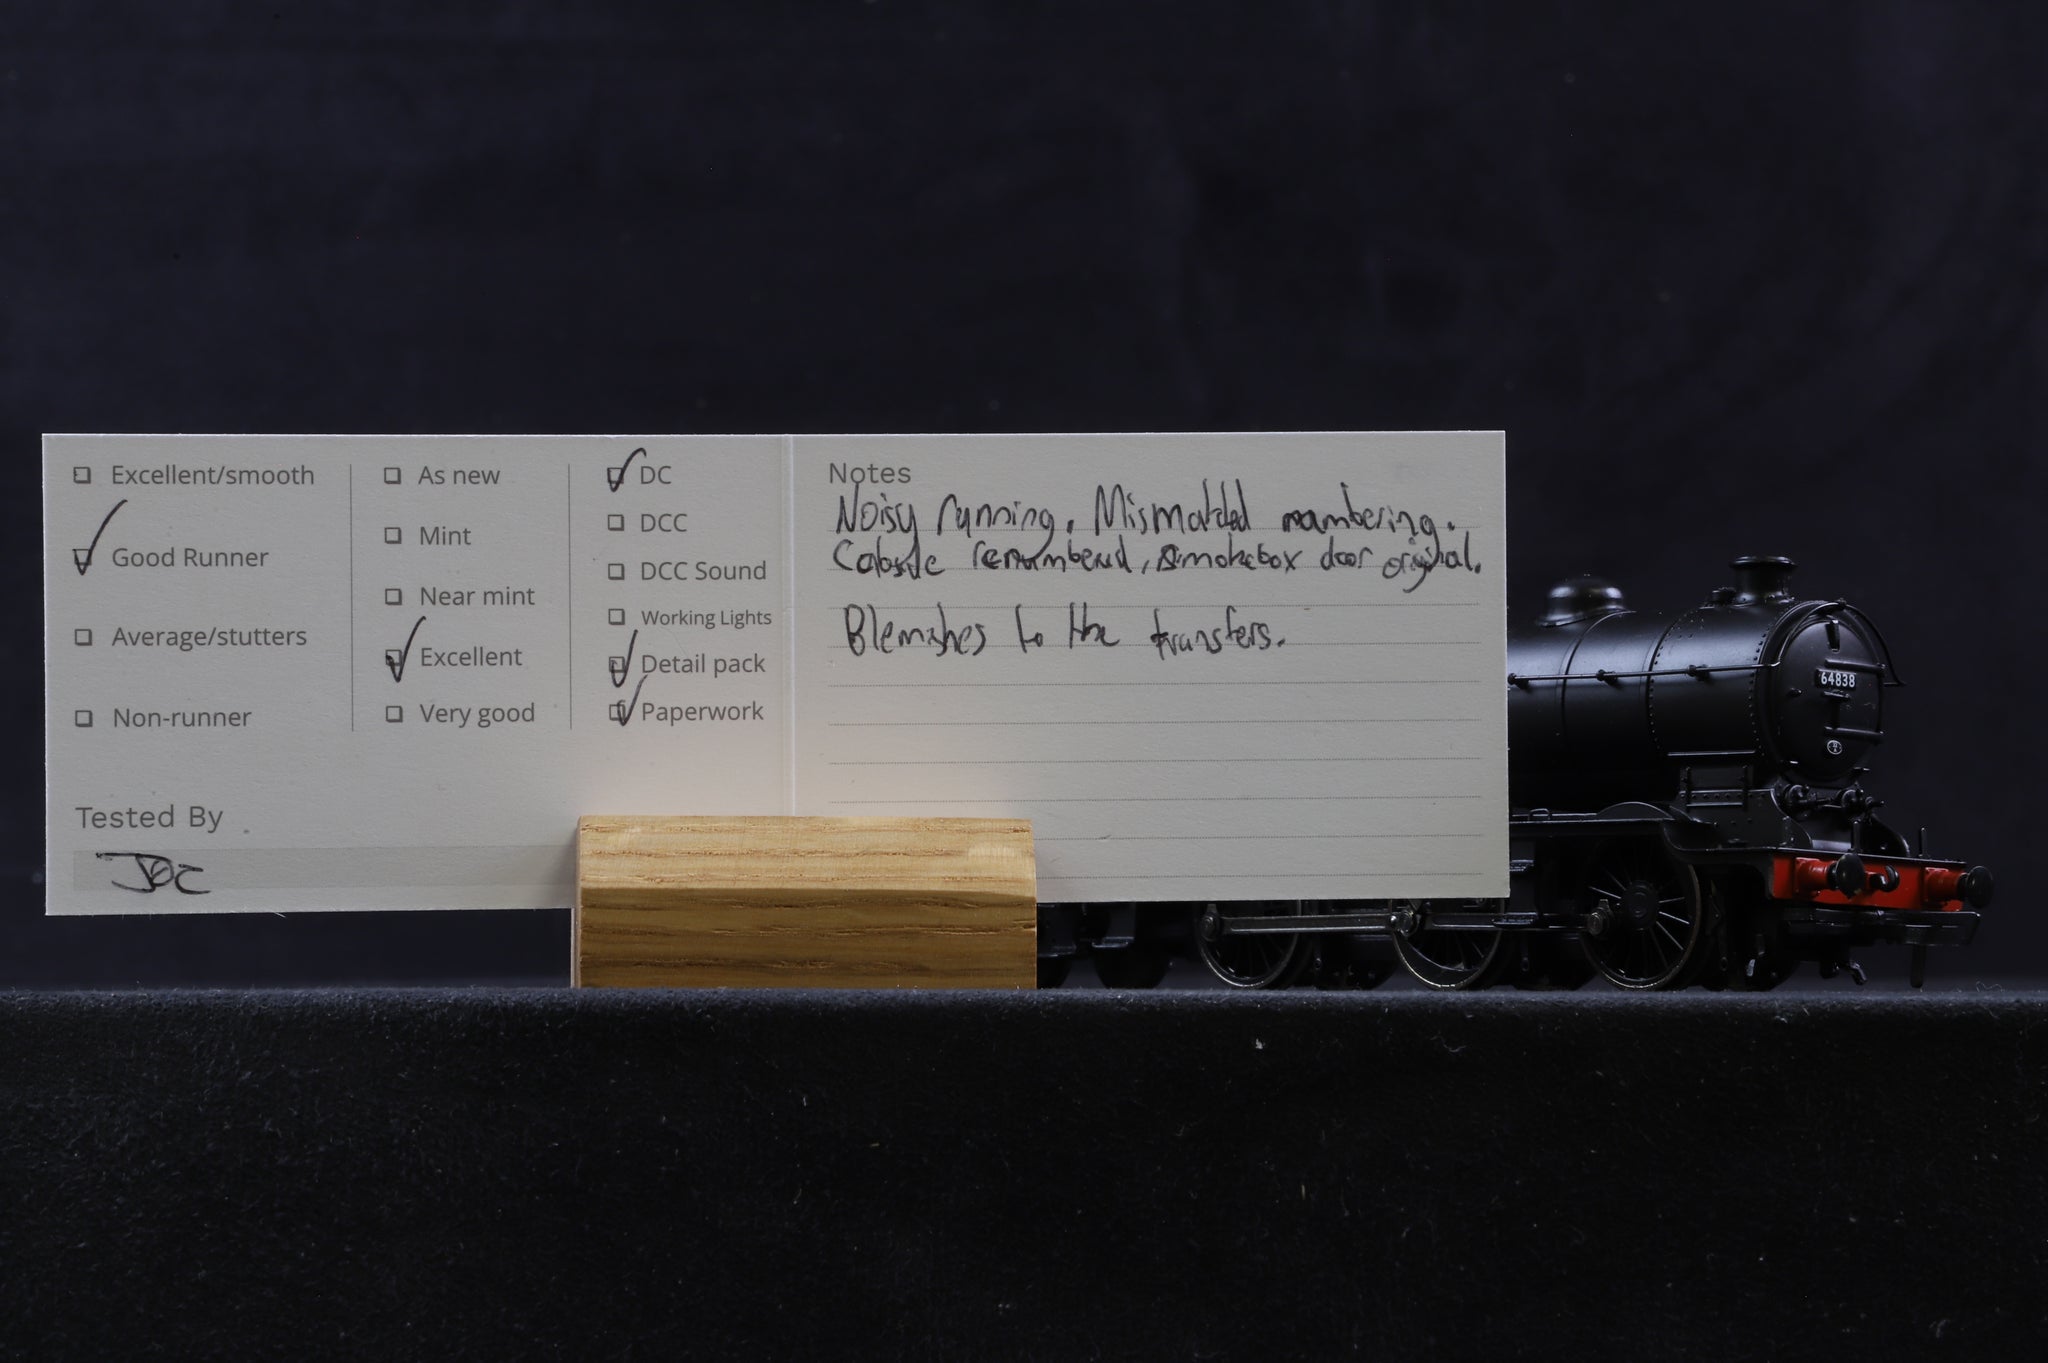 Excellent/smooth
Good Runner
Average/stutters
Non-runner
As new
Mint
Near mint
Excellent
Very good
DC
DCC
DCC Sound
Working Lights
Detail pack
Paperwork
Tested By
Joe
Notes
Noisy running. Mismatched numbering.
Cabside renumbered, smokebox door original.
Blemishes to the transfers.
64838